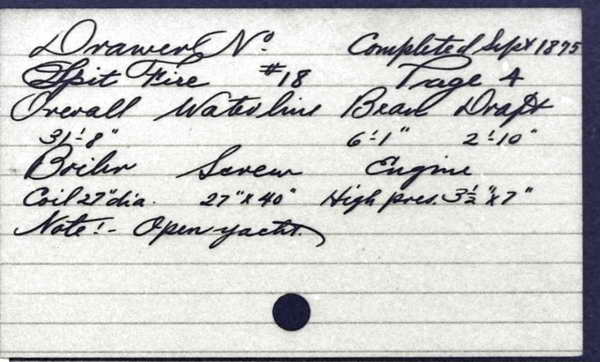 Drawer No. Completed Sept 1875
Spit Fire #18 Page 4
Overall Waterline Beam Draft
31'-8" 6'-1" 2'-10"
Boiler Screw Engine
Coil 27" dia. 27" x 40" High pres. 3½" x 7"
Note:- Open yacht.